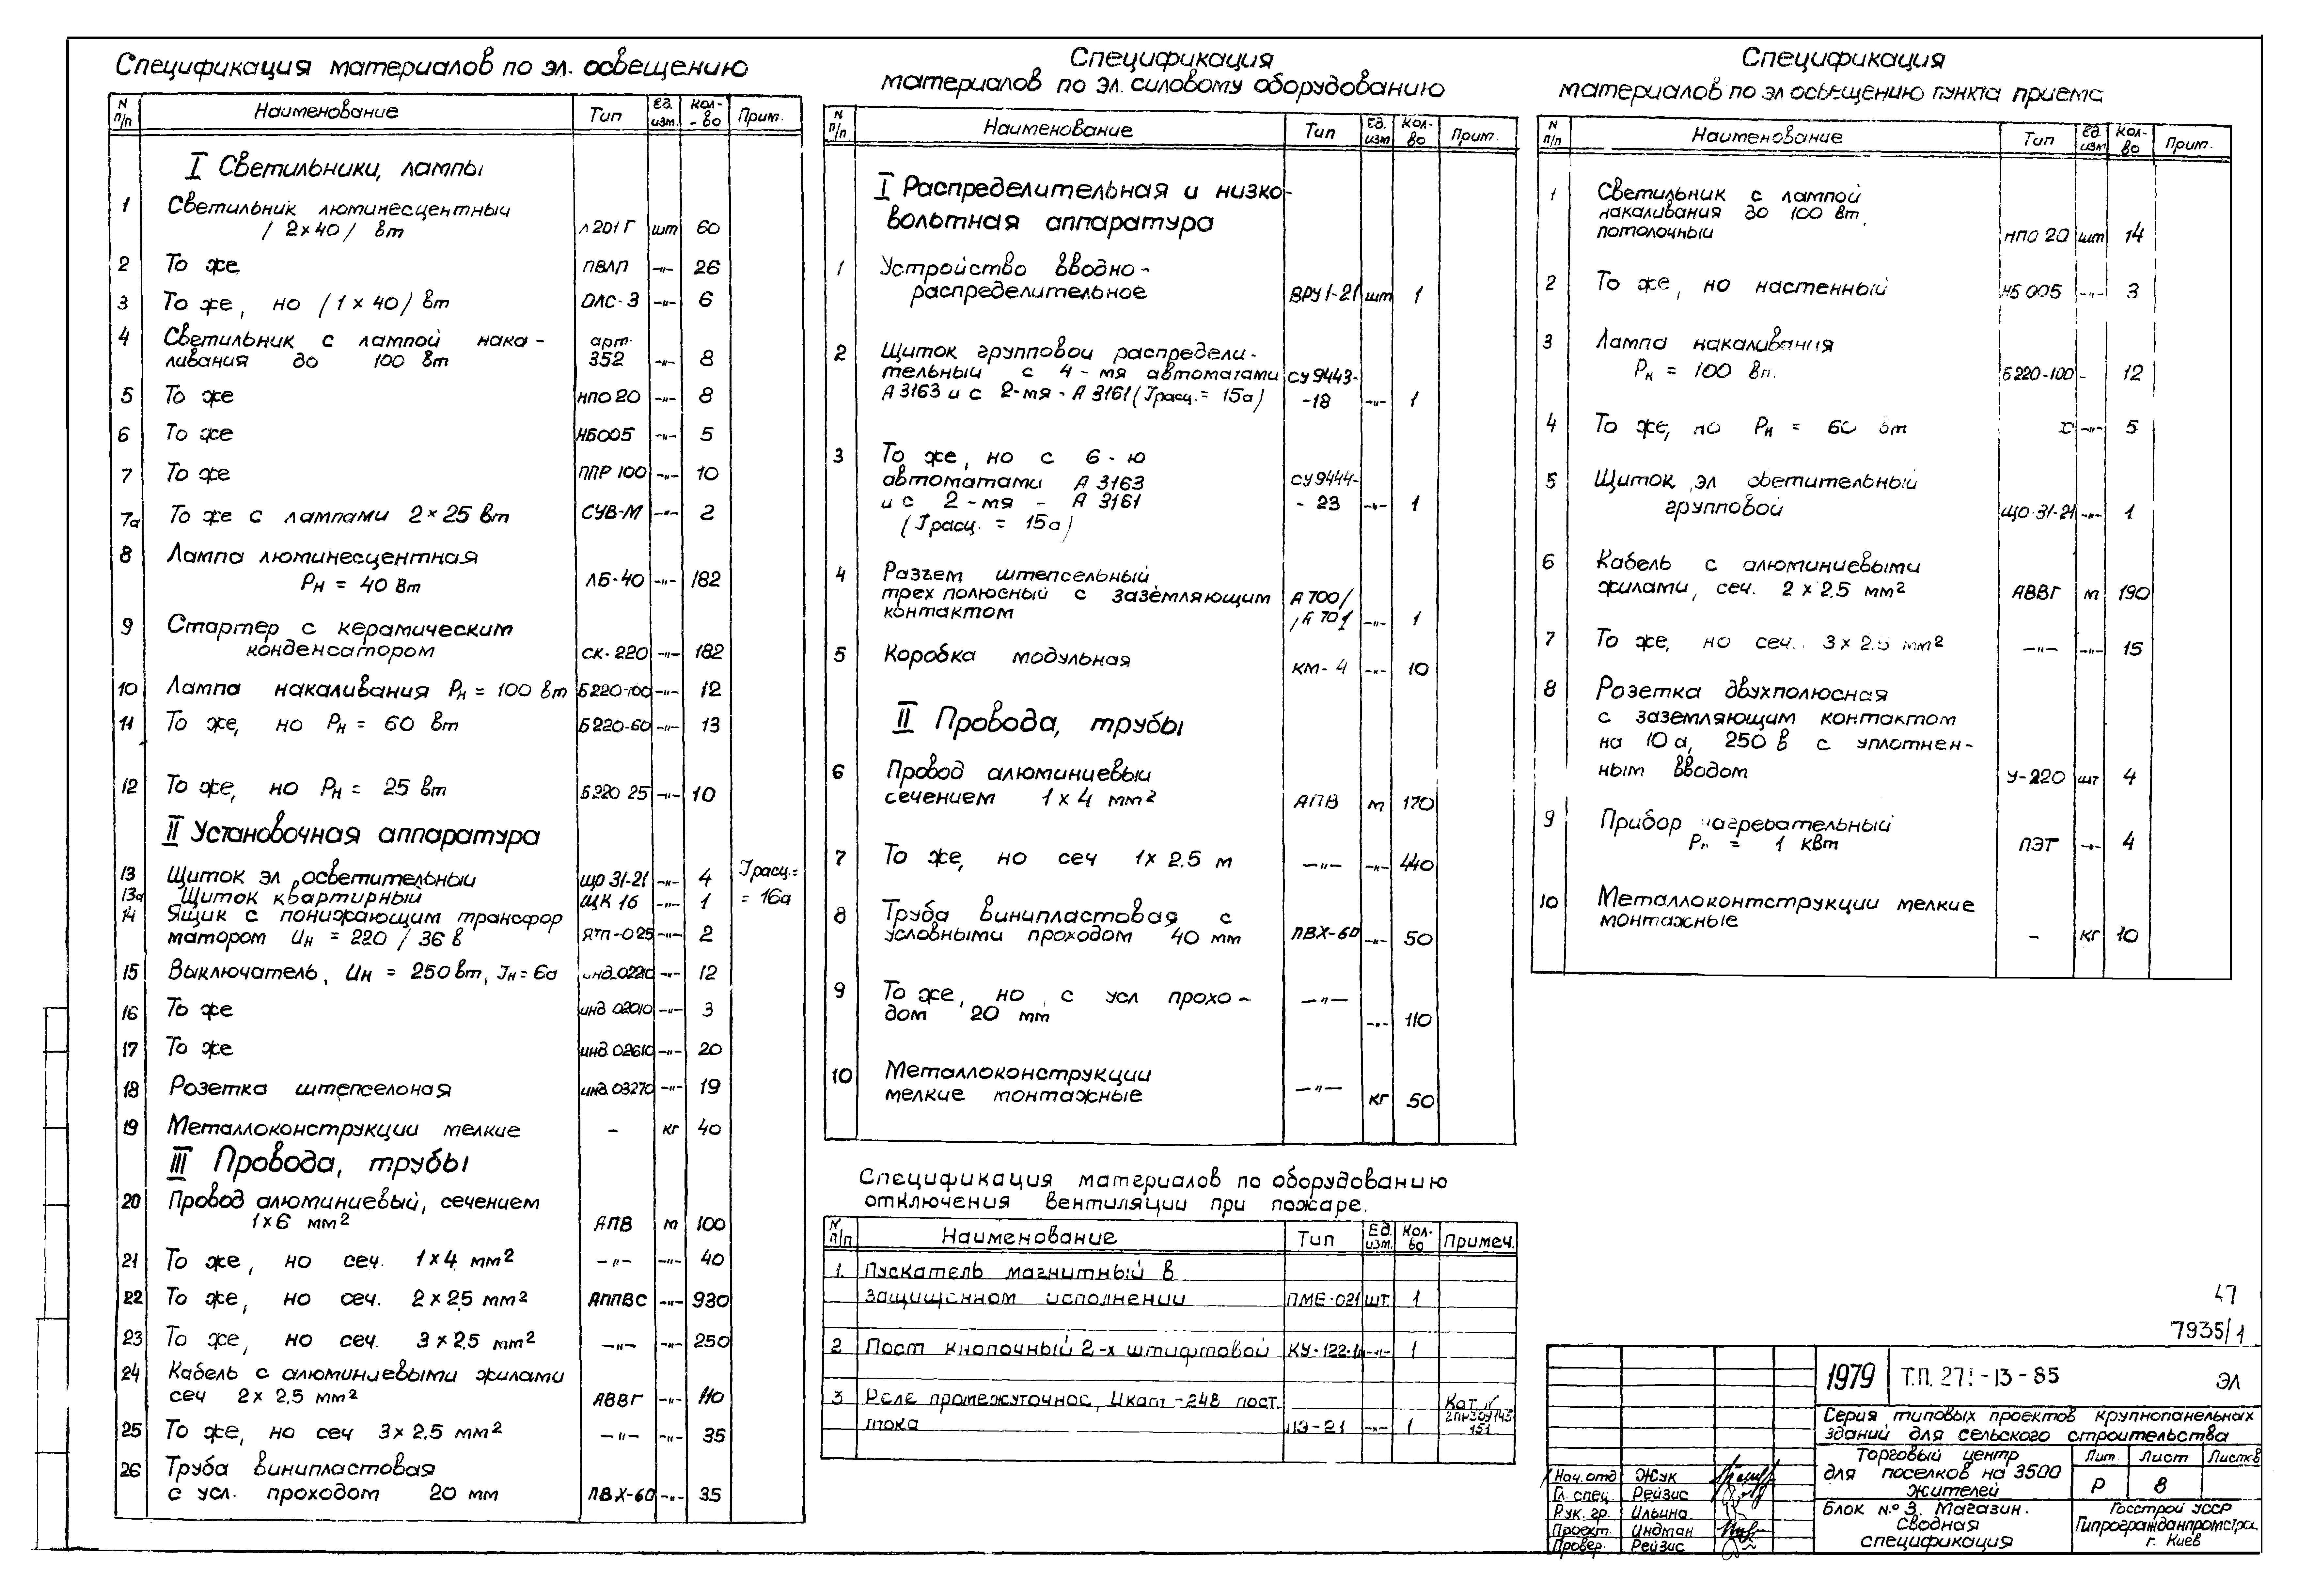 Спецификация материалов по эл. освещению
N п/п Наименование Тип Ед. изм. Кол-во Прим.
I Светильники, лампы
1 Светильник люминесцентный
/ 2×40 / вт Л 201 Г шт 60
2 То же ПВЛП -"- 26
3 То же, но / 1 × 40 / вт ОЛС-3 -"- 6
4 Светильник с лампой нака-
ливания до 100 вт арт. 352 -"- 8
5 То же НПО 20 -"- 8
6 То же НБ005 -"- 5
7 То же ППР 100 -"- 10
7а То же с лампами 2×25 вт СУВ-М -"- 2
8 Лампа люминесцентная
Рн = 40 вт ЛБ-40 -"- 182
9 Стартер с керамическим
конденсатором СК-220 -"- 182
10 Лампа накаливания Рн = 100 вт Б220-100 -"- 12
11 То же, но Рн = 60 вт Б220-60 -"- 13
12 То же, но Рн = 25 вт Б220 25 -"- 10
II Установочная аппаратура
13 Щиток эл. осветительный ЩО 31-21 -"- 4 Iрасц.=
13а Щиток квартирный ЩК 16 -"- 1 = 16а
14 Ящик с понижающим трансфор
матором Uн = 220 / 36 в ЯТП-025 -"- 2
15 Выключатель, Uн = 250 вт, Iн = 6а инд.02210 -"- 12
16 То же инд 02010 -"- 3
17 То же инд.02610 -"- 20
18 Розетка штепселоная инд.03270 -"- 19
19 Металлоконструкции мелкие - кг 40
III Провода, трубы
20 Провод алюминиевый, сечением
1×6 мм² АПВ м 100
21 То же, но сеч. 1×4 мм² -"- -"- 40
22 То же, но сеч. 2×2.5 мм² АППВС -"- 930
23 То же, но сеч. 3×2.5 мм² -"- -"- 250
24 Кабель с алюминиевыми жилами
сеч 2×2.5 мм² АВВГ -"- 110
25 То же, но сеч 3×2.5 мм² -"- -"- 35
26 Труба винипластовая
с усл. проходом 20 мм ПВХ-60 -"- 35
Спецификация
материалов по эл. силовому оборудованию
N п/п Наименование Тип Ед. изм Кол-во Прим.
I Распределительная и низко-
вольтная аппаратура
1 Устройство вводно-
распределительное ВРУ1-21 шт 1
2 Щиток групповой распредели-
тельный с 4-мя автоматами СУ9443-
А3163 и с 2-мя - А3161 (Iрасц. = 15а) -18 -"- 1
3 То же, но с 6-ю
автоматами А 3163 СУ9444-
и с 2-мя - А 3161 - 23 -"- 1
(Iрасц. = 15а)
4 Разъем штепсельный
трехполюсный с заземляющим А 700/
контактом /А 701 -"- 1
5 Коробка модульная КМ-4 -"- 10
II Провода, трубы
6 Провод алюминиевый
сечением 1×4 мм² АПВ м 170
7 То же, но сеч 1×2.5 м -"- -"- 440
8 Труба винипластовая с
условными проходом 40 мм ПВХ-60 -"- 50
9 То же, но с усл прохо-
дом 20 мм -"- -"- 110
10 Металлоконструкции
мелкие монтажные -"- кг 50
Спецификация материалов по оборудованию
отключения вентиляции при пожаре.
N п/п Наименование Тип Ед. изм. Кол-во Примеч.
1. Пускатель магнитный в
защищенном исполнении ПМЕ-021 шт. 1
2 Пост кнопочный 2-х штифтовой КУ-122-1 -"- 1
3 Реле промежуточное, Uкат-24В пост.
тока ПЭ-21 -"- 1 Кат.
151
Спецификация
материалов по эл освещению пункта приема
N п/п Наименование Тип Ед изм Кол-во Прим.
1 Светильник с лампой
накаливания до 100 вт.
потолочный НПО 20 шт 14
2 То же, но настенный НБ 005 -"- 3
3 Лампа накаливания
Рн = 100 Вт. Б220-100 - 12
4 То же, но Рн = 60 вт -"- 5
5 Щиток эл светительный
групповой ЩО-31-21 -"- 1
6 Кабель с алюминиевыми
жилами, сеч. 2×2.5 мм² АВВГ м 190
7 То же, но сеч. 3×2.5 мм² -"- -"- 15
8 Розетка двухполюсная
с заземляющим контактом
на 10 а, 250 в с уплотнен-
ным вводом У-220 шт 4
9 Прибор нагревательный
Рн = 1 квт ПЭТ -"- 4
10 Металлоконтструкции мелкие
монтажные - кг 10
47
7935/1
1979 Т.П. 271-13-85 ЭЛ
Серия типовых проектов крупнопанельных
зданий для сельского строительства
Торговый центр
для поселков на 3500
жителей
Лит Лист Листов
Р 8
Блок №3. Магазин.
Сводная
спецификация
Госстрой УССР
Гипрогражданпромстрой
г. Киев
Нач. отд Жук
Гл. спец. Рейзис
Рук. гр. Ильина
Проект. Индман
Провер. Рейзис